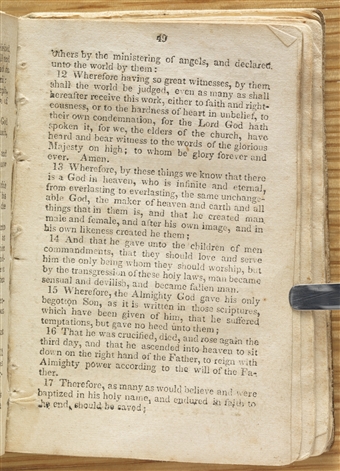 49
others by the ministering of angels, and declared
unto the world by them:
12 Wherefore having so great witnesses, by them
shall the world be judged, even as many as shall
hereafter receive this work, either to faith and right-
eousness, or to the hardness of heart in unbelief, to
their own condemnation, for the Lord God hath
spoken it, for we, the elders of the church, have
heard and bear witness to the words of the glorious
Majesty on high; to whom be glory forever and
ever. Amen.
13 Wherefore, by these things we know that there
is a God in heaven, who is infinite and eternal,
from everlasting to everlasting, the same unchange-
able God, the maker of heaven and earth and all
things that in them is, and that he created man
male and female, and after his own image, and in
his own likeness created he them;
14 And that he gave unto the children of men
commandments, that they should love and serve
him the only being whom they should worship, but
by the transgression of these holy laws, man became
sensual and devilish, and became fallen man.
15 Wherefore, the Almighty God gave his only
begotton Son, as it is written in those scriptures,
which have been given of him, that he suffered
temptations, but gave no heed unto them;
16 That he was crucified, died, and rose again the
third day, and that he ascended into heaven to sit
down on the right hand of the Father, to reign with
Almighty power according to the will of the Fa-
ther.
17 Therefore, as many as would believe and were
baptized in his holy name, and endured in faith to
the end, should be saved;